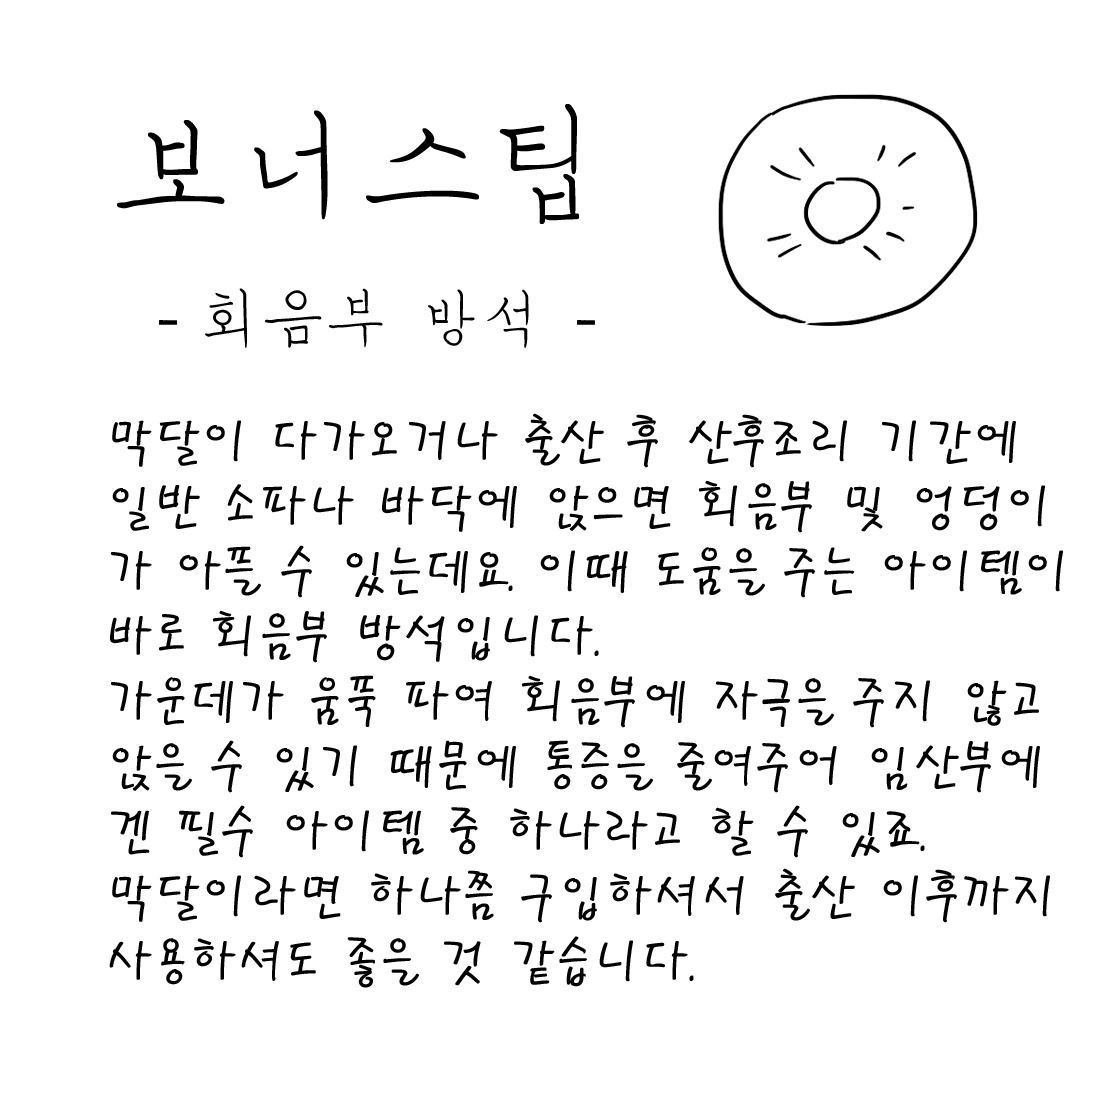 보너스팁
- 회음부 방석 -
막달이 다가오거나 출산 후 산후조리 기간에
일반 소파나 바닥에 앉으면 회음부 및 엉덩이
가 아플 수 있는데요. 이때 도움을 주는 아이템이
바로 회음부 방석입니다.
가운데가 움푹 파여 회음부에 자극을 주지 않고
앉을 수 있기 때문에 통증을 줄여주어 임산부에
겐 필수 아이템 중 하나라고 할 수 있죠.
막달이라면 하나쯤 구입하셔서 출산 이후까지
사용하셔도 좋을 것 같습니다.